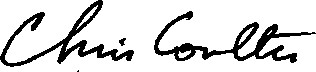 Chris Coulter